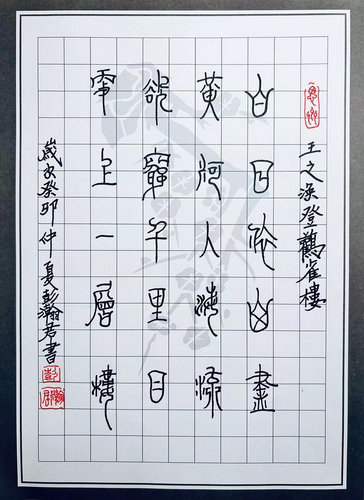 王之渙登鸛雀樓
白日依山盡
黃河入海流
欲窮千里目
更上一層樓
歲次癸卯仲夏彭瀚君書